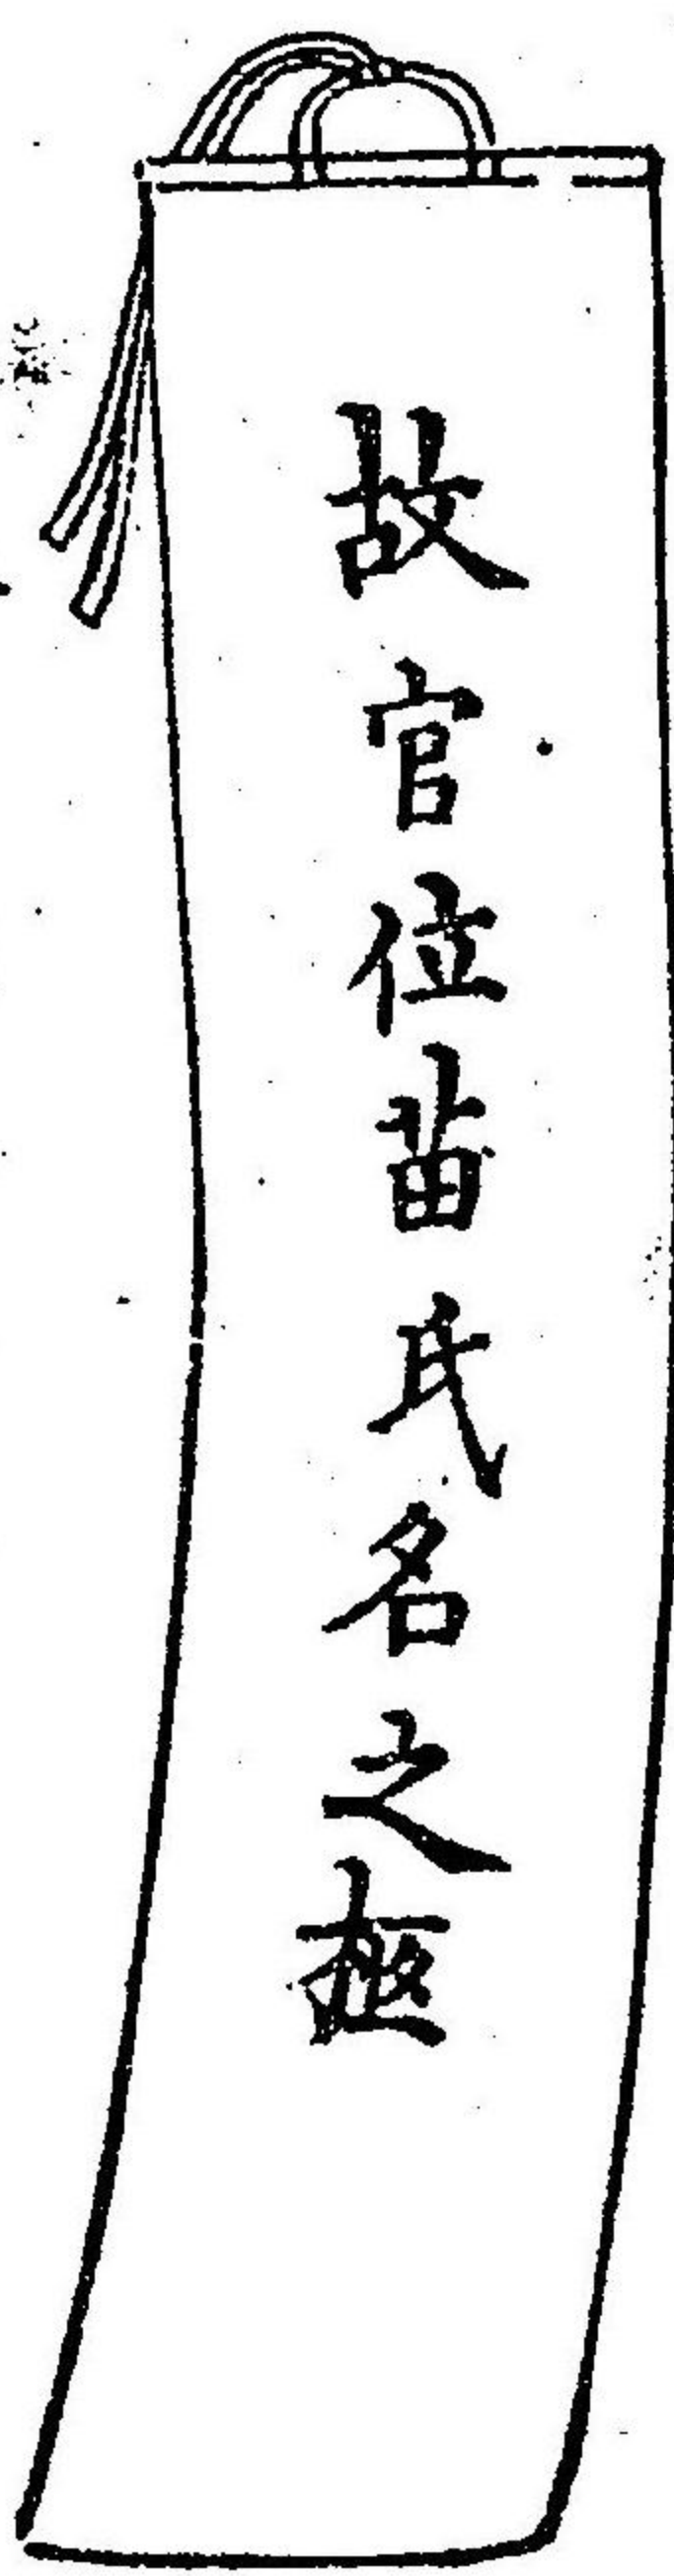 故官位苗氏名之柩